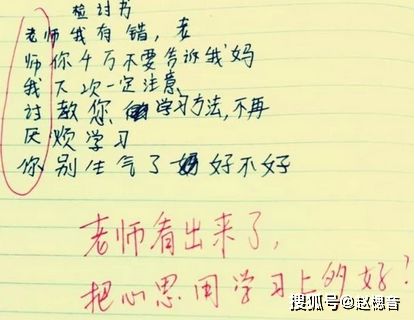 检讨书
老师我有错，老
师你千万不要告诉我妈
我下次一定注意
讨教您学习方法，不再
厌烦学习
你别生气了好不好
老师看出来了，
把心思用学习上多好？
搜狐号@赵楒音